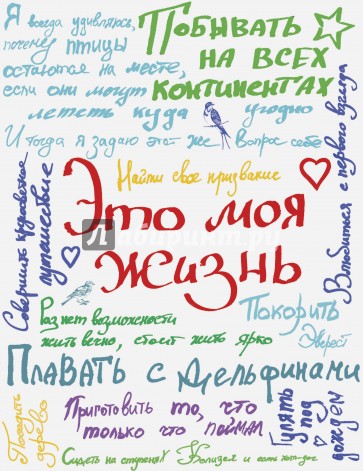 Я всегда удивляюсь,
почему птицы
остаются на месте,
если они могут
лететь куда угодно
И тогда я задаю этот же вопрос себе
Побывать
на всех
континентах
Влюбиться с первого взгляда
Найти свое призвание
Совершить кругосветное
путешествие
Это моя
жизнь
Лабиринт.ру
Раз нет возможности
жить вечно, стоит жить ярко
Покорить
Эверест
Плавать с дельфинами
Посадить
дерево
Приготовить то, что
только что поймал
Гулять
под
дождем
Сидеть на ступенях
и есть хот-дог